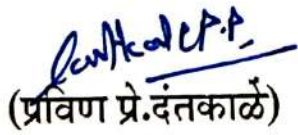 (प्रविण प्रे.दंतकाळे)